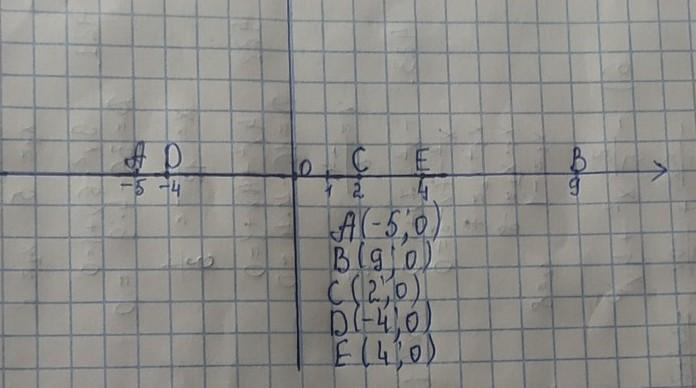 A D O C E B
-5 -4 1 2 4 9
A(-5;0)
B(9;0)
C(2;0)
D(-4;0)
E(4;0)